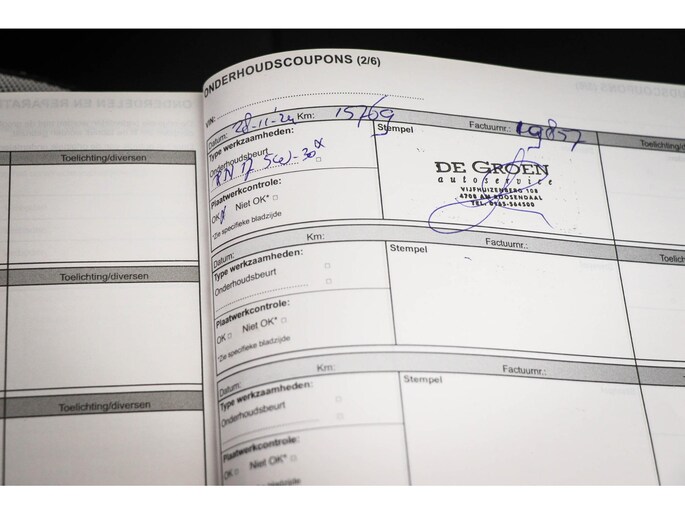 ONDERHOUDSCOUPONS (2/6)
VIN:
Datum: 28-11-'24 Km: 15769
Type werkzaamheden:
Onderhoudsbeurt
RN 17 5W-30
Plaatwerkcontrole:
OK Niet OK*
*Zie specifieke bladzijde
Stempel Factuurnr.: 19857
DE GROEN
autoservice
VIJFHUIZENBERG 108
4708 AM ROOSENDAAL
TEL. 0165-564500
Toelichting/d
Datum: Km:
Type werkzaamheden:
Onderhoudsbeurt
Plaatwerkcontrole:
OK Niet OK*
*Zie specifieke bladzijde
Stempel Factuurnr.:
Toelich
Datum: Km:
Type werkzaamheden:
Onderhoudsbeurt
Plaatwerkcontrole:
OK Niet OK*
*Zie specifieke bladzijde
Stempel Factuurnr.:
Toelichting/diversen
Toelichting/diversen
Toelichting/diversen